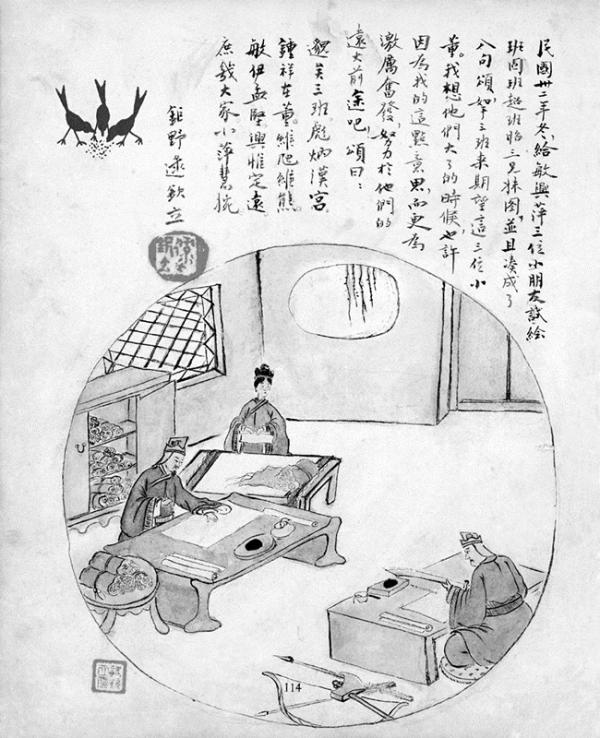 民國卅二年冬，給敏興萍三位小朋友試绘
班固班超班昭三兄妹图，並且凑成了
八句頌，挐三班来期望這三位小
董。我想他們大了的時候，也許
因為我的這點意思，而更為
激厲奮發，努力於他們的
遠大前途吧！頌曰：
邈矣三班，彪炳漢宫
鍾祥在董，維虺維熊
敏伊孟堅，興惟定遠
庶哉大家，小萍慧婉
鉅野逯欽立
114